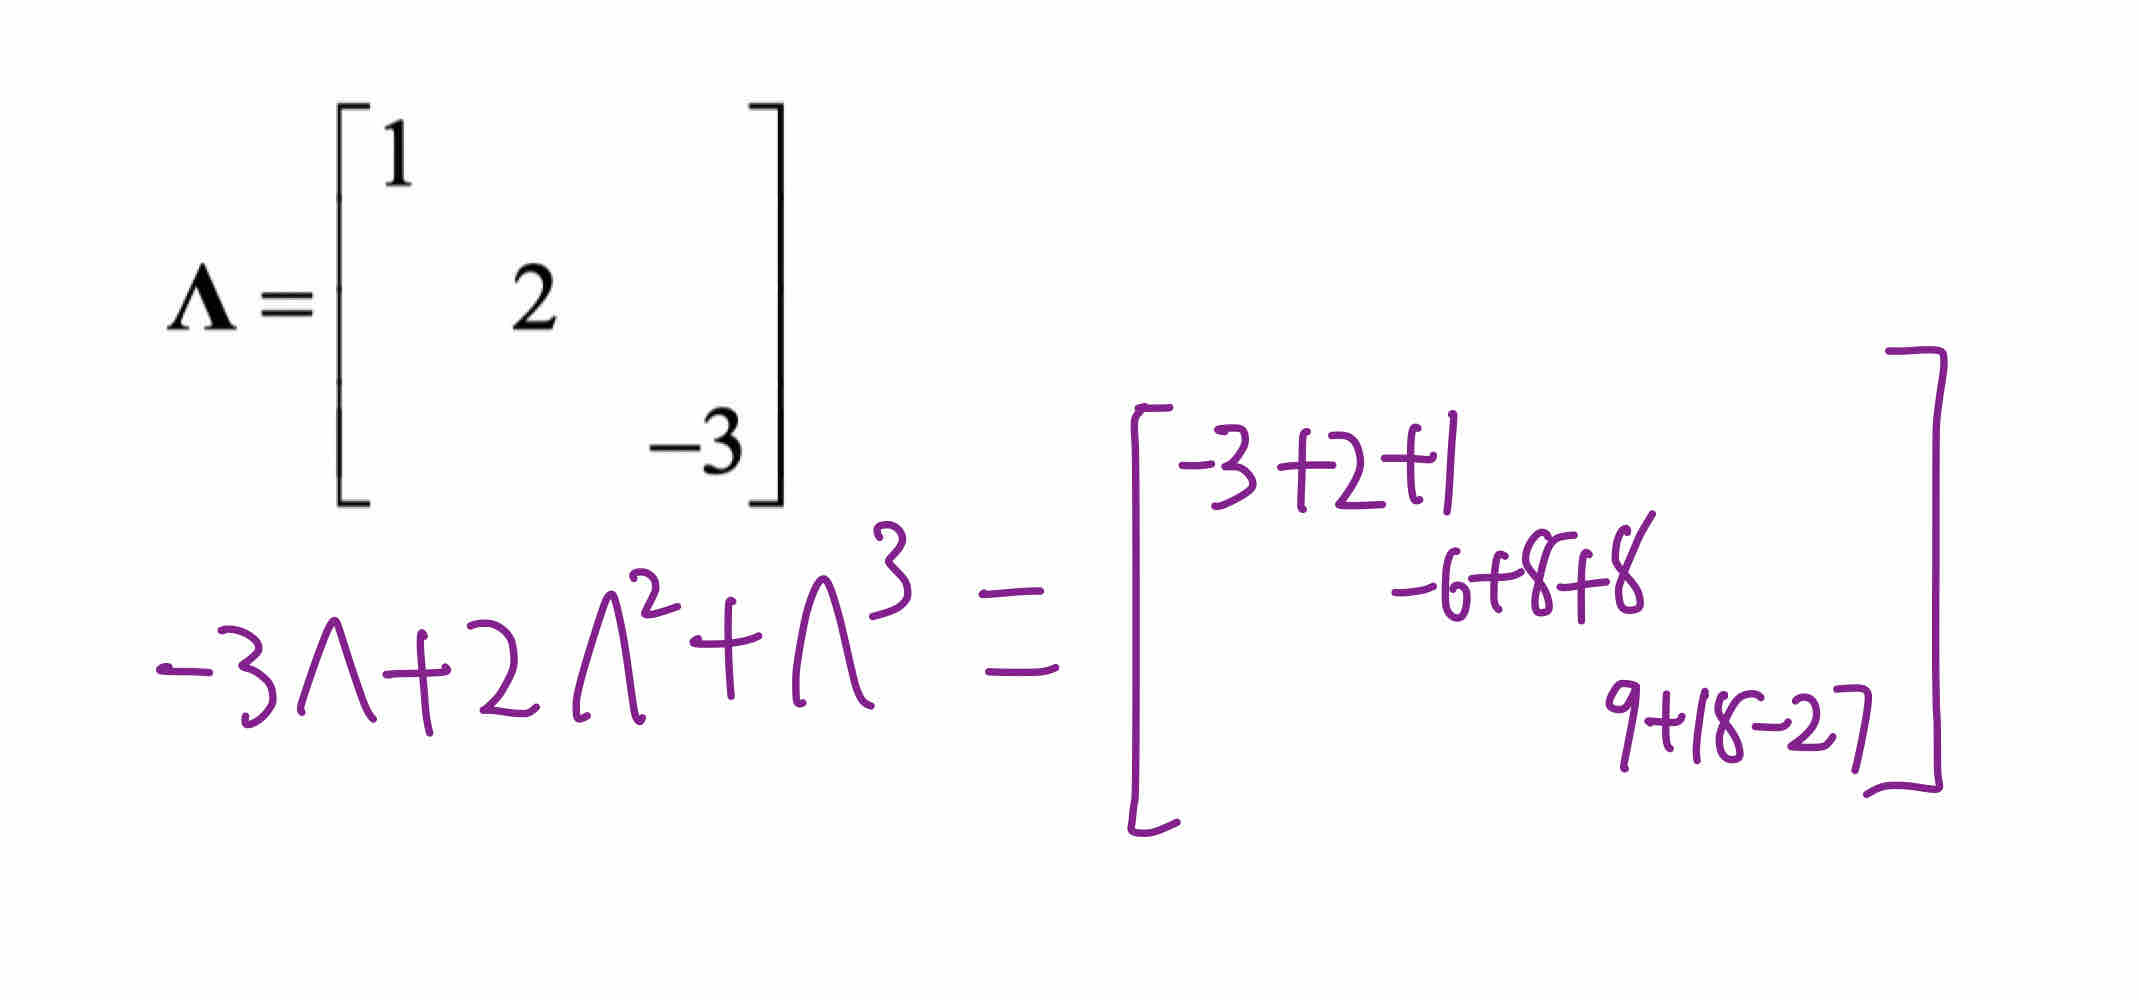 Λ = [ 1
2
−3 ]
-3Λ+2Λ²+Λ³ = [ -3+2+1
-6+8+8
9+18-27 ]